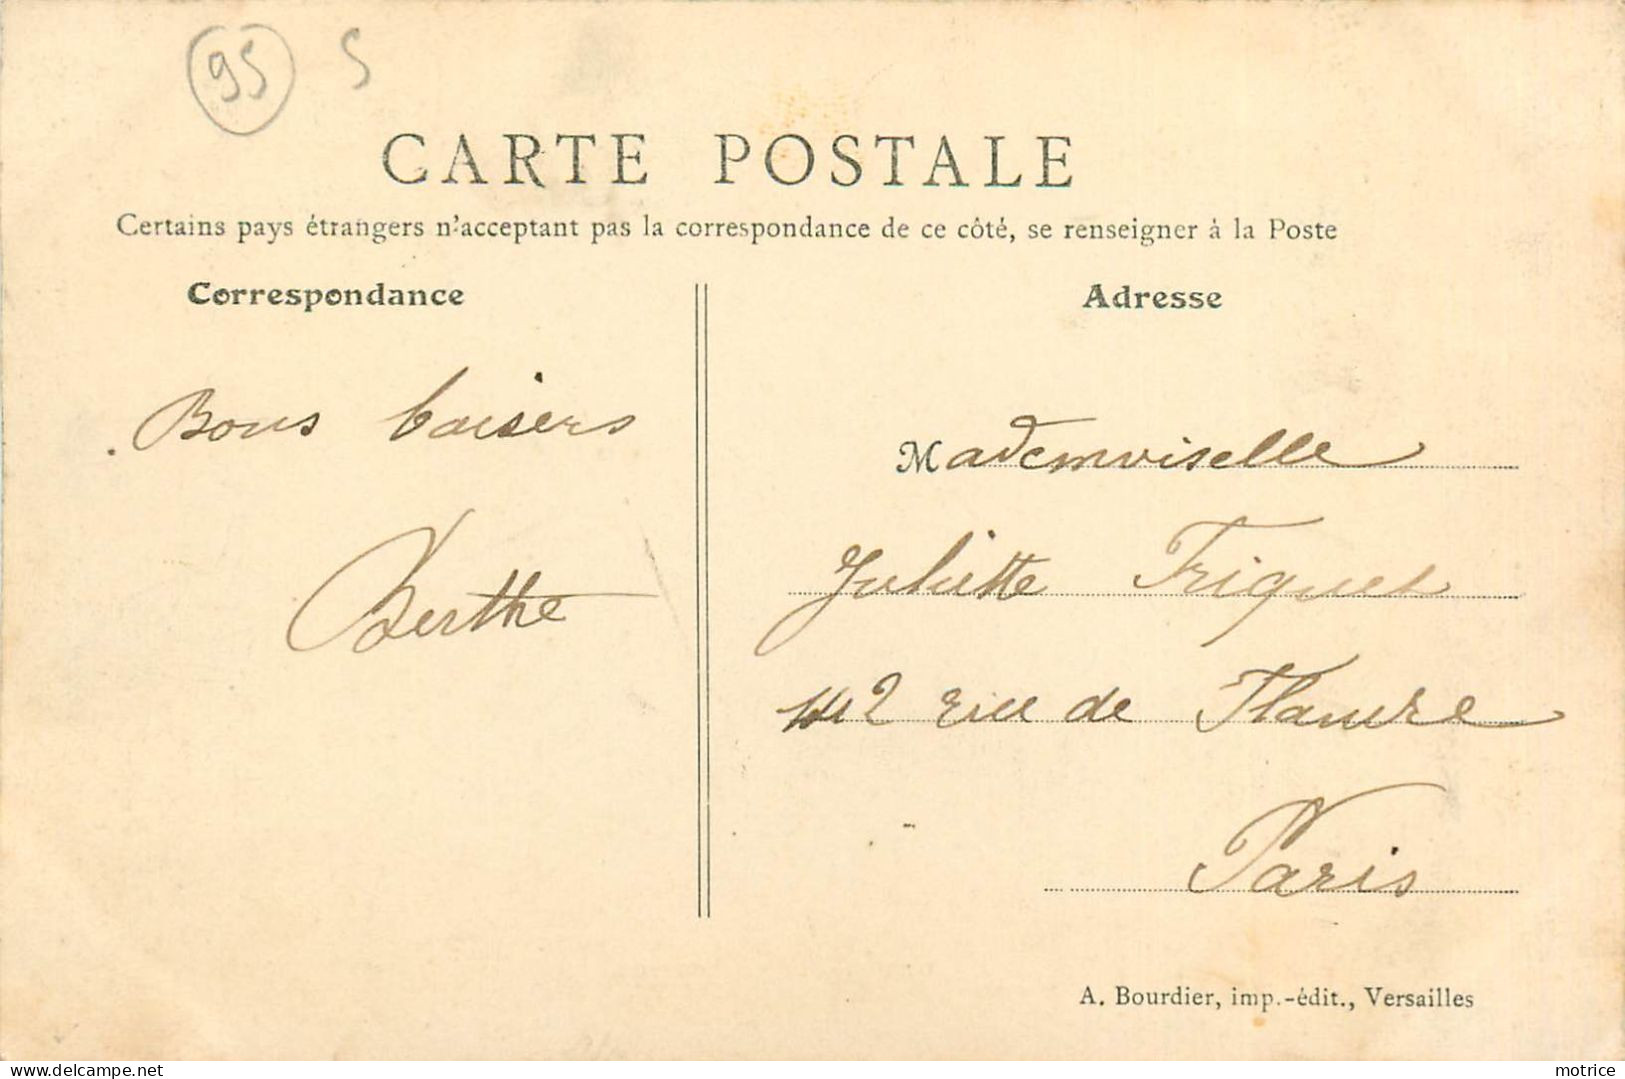 95 S
CARTE POSTALE
Certains pays étrangers n'acceptant pas la correspondance de ce côté, se renseigner à la Poste
Correspondance
Bons baisers
Berthe
Adresse
Mademoiselle
Juliette Triquet
142 rue de Flandre
Paris
A. Bourdier, imp.-édit., Versailles
www.delcampe.net
motrice